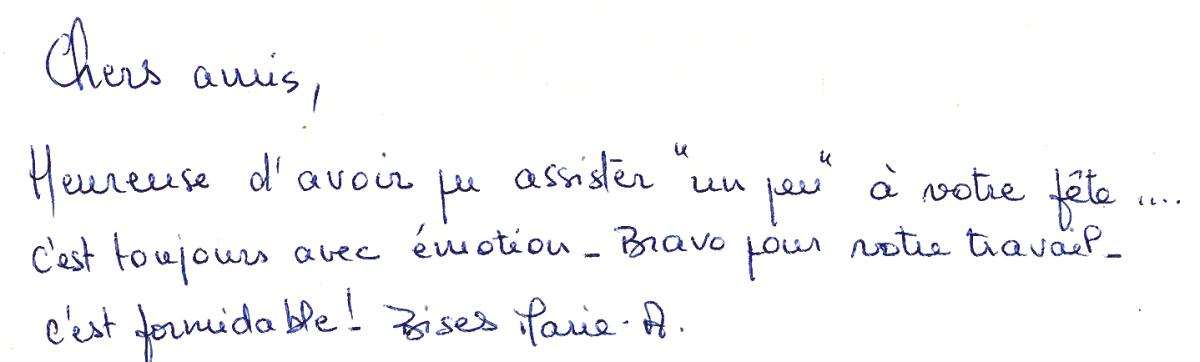 Chers amis,
Heureuse d'avoir pu assister "un peu" à votre fête ....
c'est toujours avec émotion - Bravo pour votre travail -
c'est formidable ! Bises Marie-A.